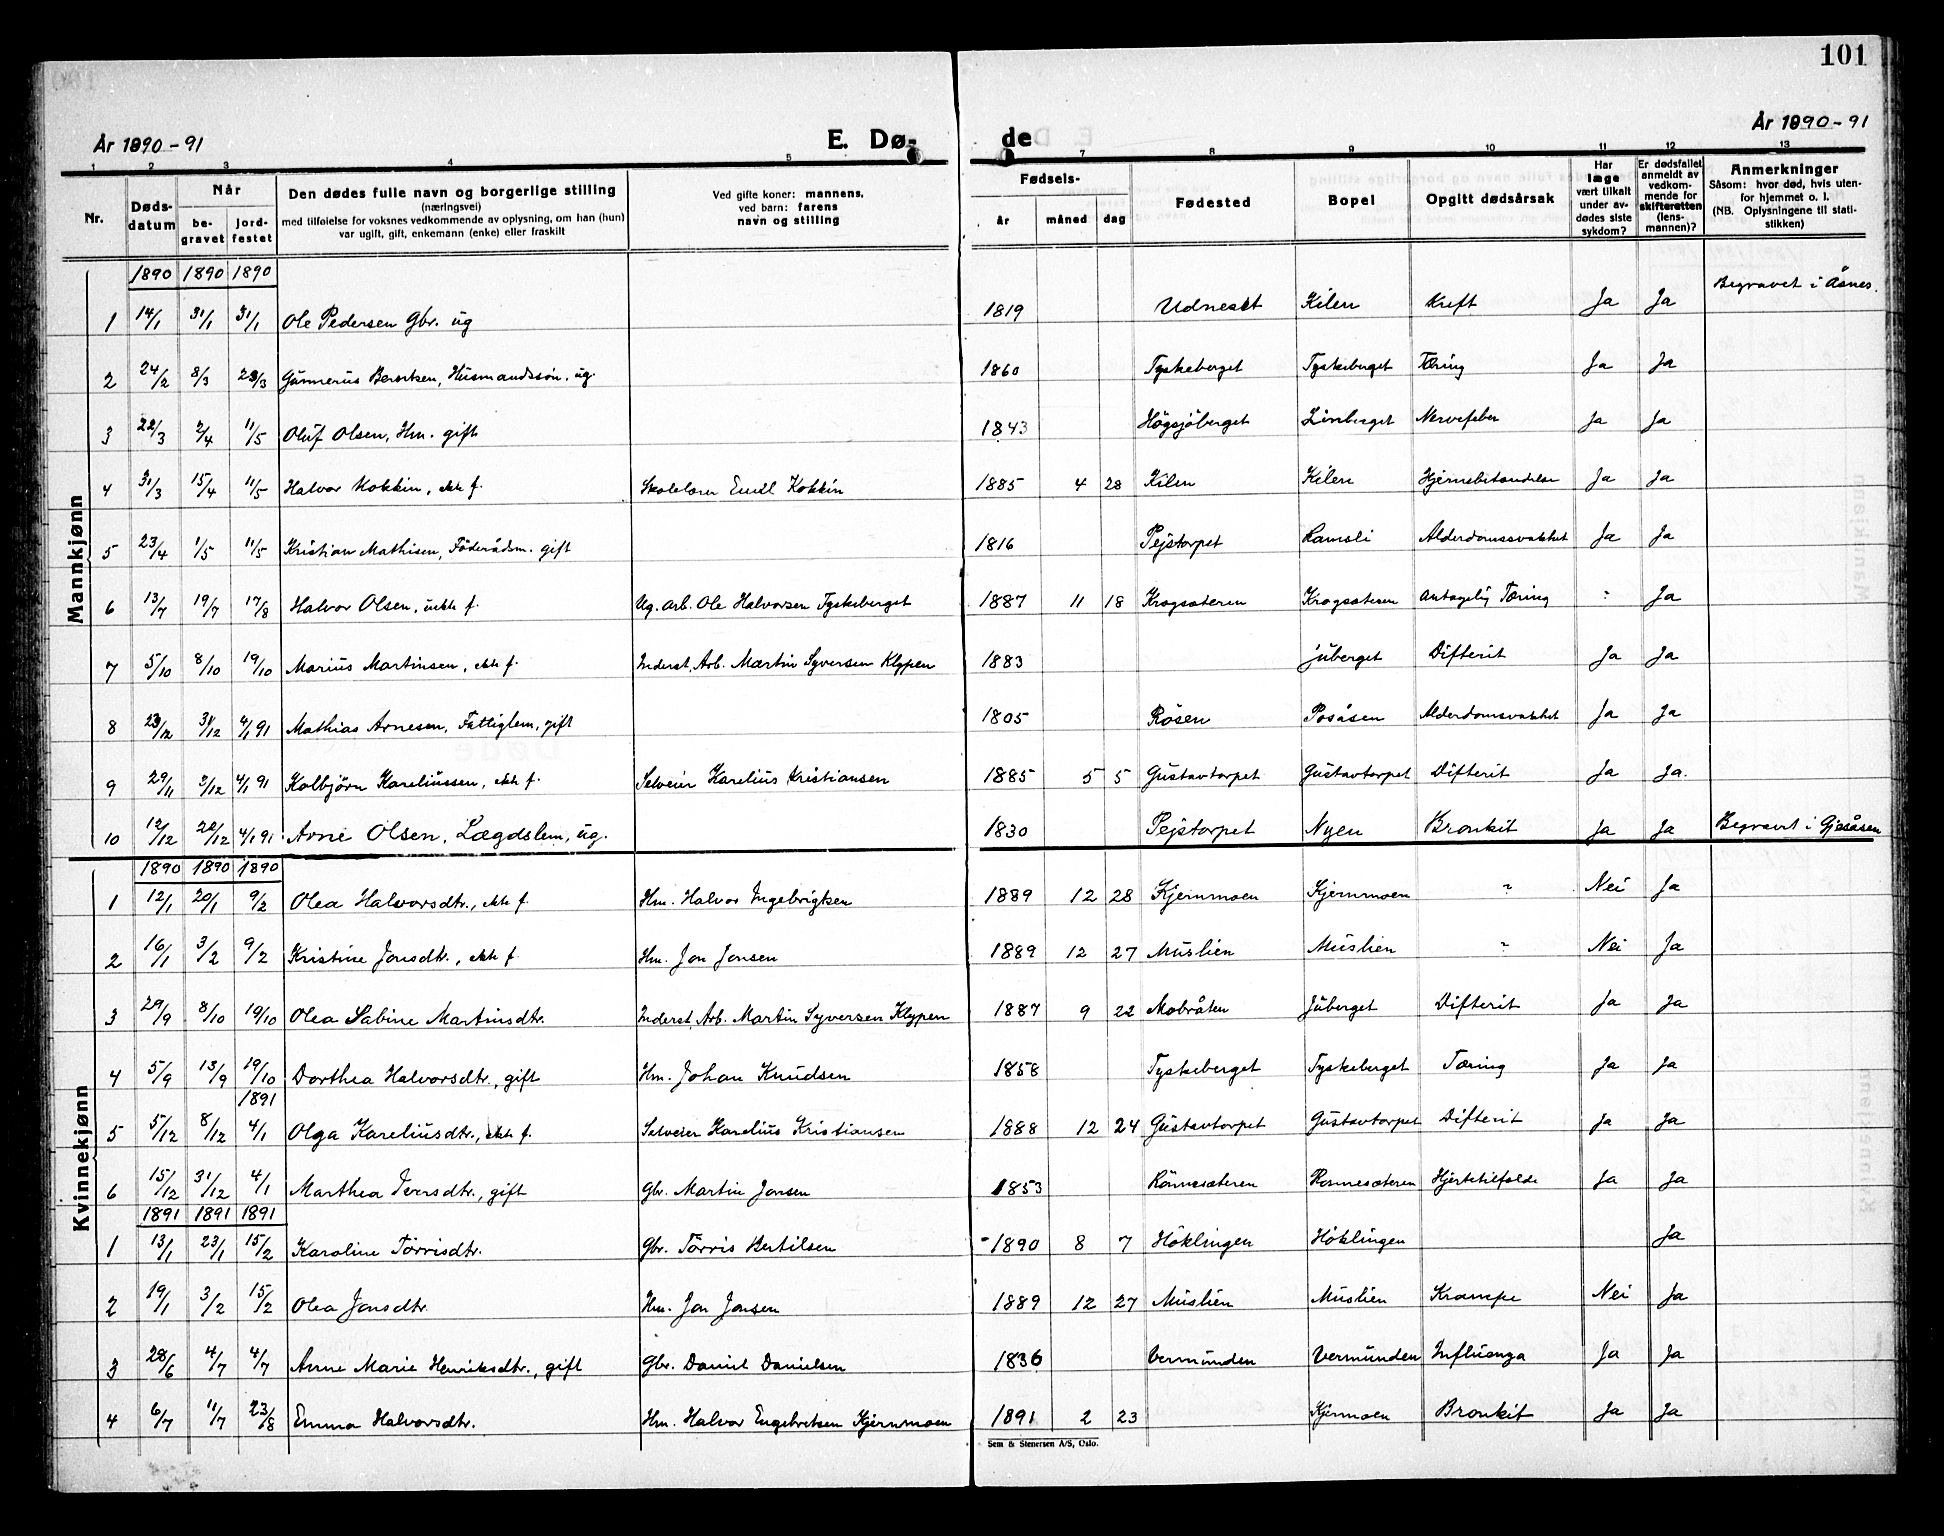 101
År 1890-91
E. Dø-
de
År 1890-91
1 2 3 4 5 7 8 9 10 11 12 13
Nr.
Døds-
datum
Når
be-
gravet
jord-
festet
Den dødes fulle navn og borgerlige stilling
(næringsvei)
med tilføielse for voksnes vedkommende av oplysning, om han (hun)
var ugift, gift, enkemann (enke) eller fraskilt
Ved gifte koner: mannens,
ved barn: farens
navn og stilling
Fødsels-
år måned dag
Fødested
Bopel
Opgitt dødsårsak
Har
læge
vært tilkalt
under av-
dødes siste
sykdom?
Er dødsfallet
anmeldt av
vedkom-
mende for
skifteretten
(lens-
mannen)?
Anmerkninger
Såsom: hvor død, hvis uten-
for hjemmet o. l.
(NB. Oplysningene til stati-
stikken)
Mannkjønn
1890 1890 1890
1 14/1 31/1 31/1 Ole Pedersen Gbr. ug 1819 Udneset Kilen Kreft Ja Ja Begravet i Åsnes.
2 24/2 8/3 23/3 Gunnerus Berntsen, Husmandssøn, ug. 1860 Tyskeberget Tyskeberget Tæring Ja Ja
3 22/3 2/4 11/5 Oluf Olsen, Hm. gift 1843 Högsjöberget Linberget Nervefeber Ja Ja
4 31/3 15/4 11/5 Halvor Kokkin, ekte f. Skolelærer Emil Kokkin 1885 4 28 Kilen Kilen Hjernebetændelse Ja Ja
5 23/4 1/5 11/5 Kristian Mathisen, Föderådsm. gift 1816 Pejstorpet Ramsli Alderdomssvakhet Ja Ja
6 13/7 19/7 17/8 Halvor Olsen, uekte f. Ug. arb. Ole Halvorsen Tyskeberget 1887 11 18 Krogsæteren Krogsæteren Antagelig Tæring " Ja
7 5/10 8/10 19/10 Marius Martinsen, ekte f. Inderst, Arb. Martin Syversen Klypen 1883 Juberget Difterit Ja Ja
8 23/12 31/12 4/1 91 Mathias Arnesen, Fattiglem, gift 1805 Røsen Posåsen Alderdomsvakhet Ja Ja
9 29/11 3/12 4/1 91 Kolbjörn Kareliussen, ekte f. Selveier Karelius Kristiansen 1885 5 5 Gustavtorpet Gustavtorpet Difterit Ja Ja.
10 12/12 20/12 4/1 91 Arne Olsen, Lægdslem, ug. 1830 Pejstorpet Nyen Bronkit Ja Ja Begravet i Gjesåsen
Kvinnekjønn
1890 1890 1890
1 12/1 20/1 9/2 Olea Halvorsdtr., ekte f. Hm. Halvor Ingebrigtsen 1889 12 28 Kjernmoen Kjernmoen " Nei Ja
2 16/1 3/2 9/2 Kristine Jonsdtr., ekte f. Hm. Jon Jonsen 1889 12 27 Muslien Muslien " Nei Ja
3 29/9 8/10 19/10 Olea Sabine Martinsdtr. Inderst, Arb. Martin Syversen Klypen 1887 9 22 Mobråten Juberget Difterit Ja Ja
4 5/9 13/9 19/10 Dorthea Halvorsdtr., gift Hm. Johan Knudsen 1858 Tyskeberget Tyskeberget Tæring Ja Ja
1891
5 5/12 8/12 4/1 Olga Kareliusdtr., ekte f. Selveier Karelius Kristiansen 1888 12 24 Gustavtorpet Gustavtorpet Difterit Ja Ja
6 15/12 31/12 4/1 Marthea Iversdtr., gift Gbr. Martin Jonsen 1853 Rönnesæteren Rönnesæteren Hjertetilfelde Ja Ja
1891 1891 1891
1 13/1 23/1 15/2 Karoline Törrisdtr. Gbr. Törris Bertilsen 1890 8 7 Höklingen Höklingen Ja
2 19/1 3/2 15/2 Olea Jonsdtr. Hm. Jon Jonsen 1889 12 27 Muslien Muslien Krampe Nei Ja
3 28/6 4/7 4/7 Anne Marie Henriksdtr., gift Gbr. Daniel Danielsen 1836 Vermunden Vermunden Influenga Ja Ja
4 6/7 11/7 23/8 Emma Halvorsdtr. Hm. Halvor Engebretsen Kjernmoen 1891 2 23 Kjernmoen Bronkit Ja Ja
Sem & Stenersen A/S, Oslo.